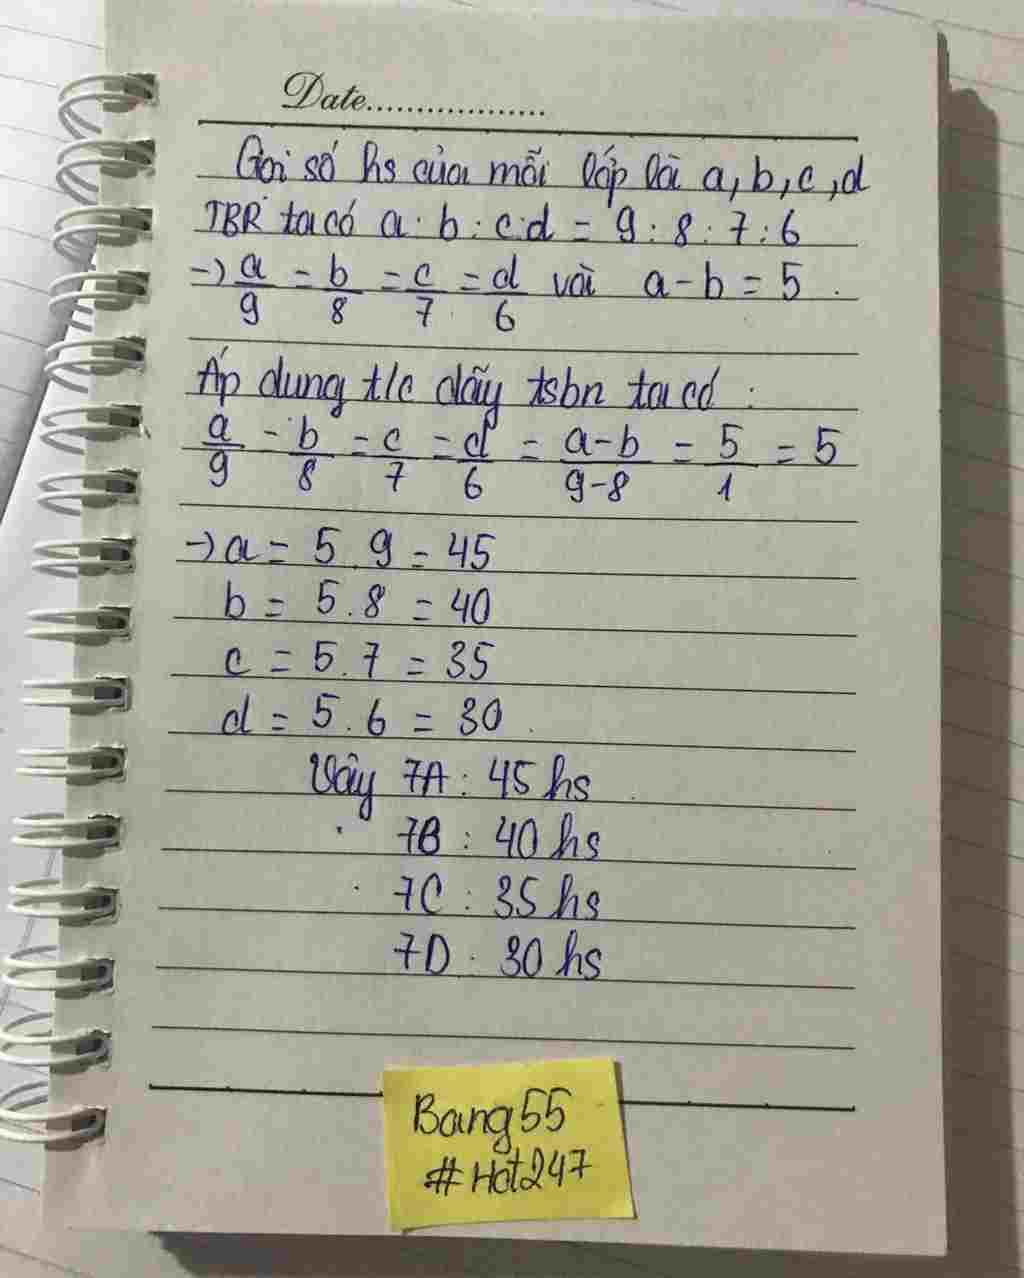 Date..................
Gọi số hs của mỗi lớp là a, b, c, d
TBR ta có a : b : c : d = 9 : 8 : 7 : 6
→ a/9 = b/8 = c/7 = d/6 và a - b = 5.
Áp dụng t/c dãy tsbn ta có :
a/9 = b/8 = c/7 = d/6 = a-b/9-8 = 5/1 = 5
→ a = 5.9 = 45
b = 5.8 = 40
c = 5.7 = 35
d = 5.6 = 30.
Vậy 7A : 45 hs
7B : 40 hs
7C : 35 hs
7D : 30 hs
Bang55
#Hot247